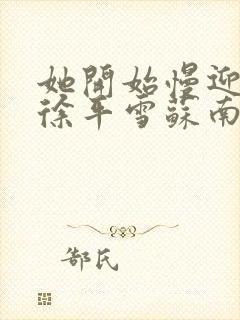 她開始慢迎
徐平雪蘇南
郜氏